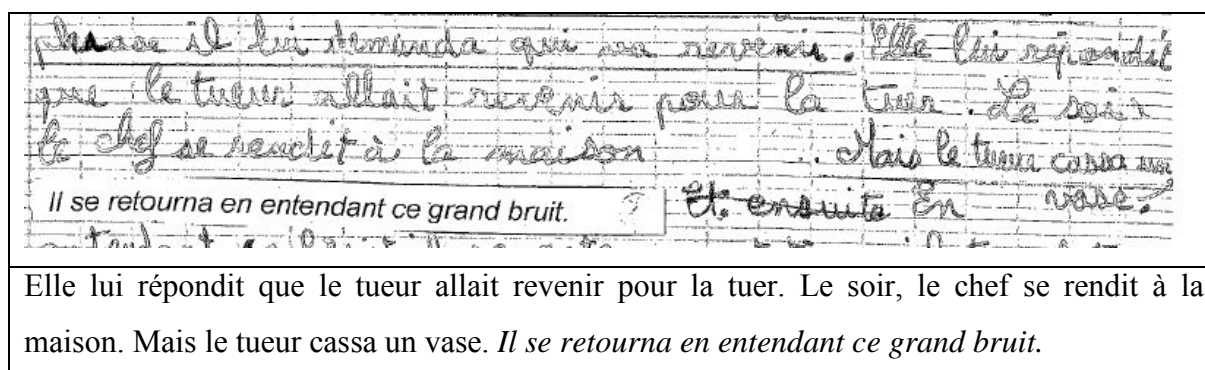 phrase il lui demanda qui va revenir. Elle lui répondit
que le tueur allait revenir pour la tuer. Le soir
le chef se rendit à la maison .. Mais le tueur cassa un
vase.
Il se retourna en entendant ce grand bruit. Et ensuite En
Elle lui répondit que le tueur allait revenir pour la tuer. Le soir, le chef se rendit à la
maison. Mais le tueur cassa un vase. Il se retourna en entendant ce grand bruit.